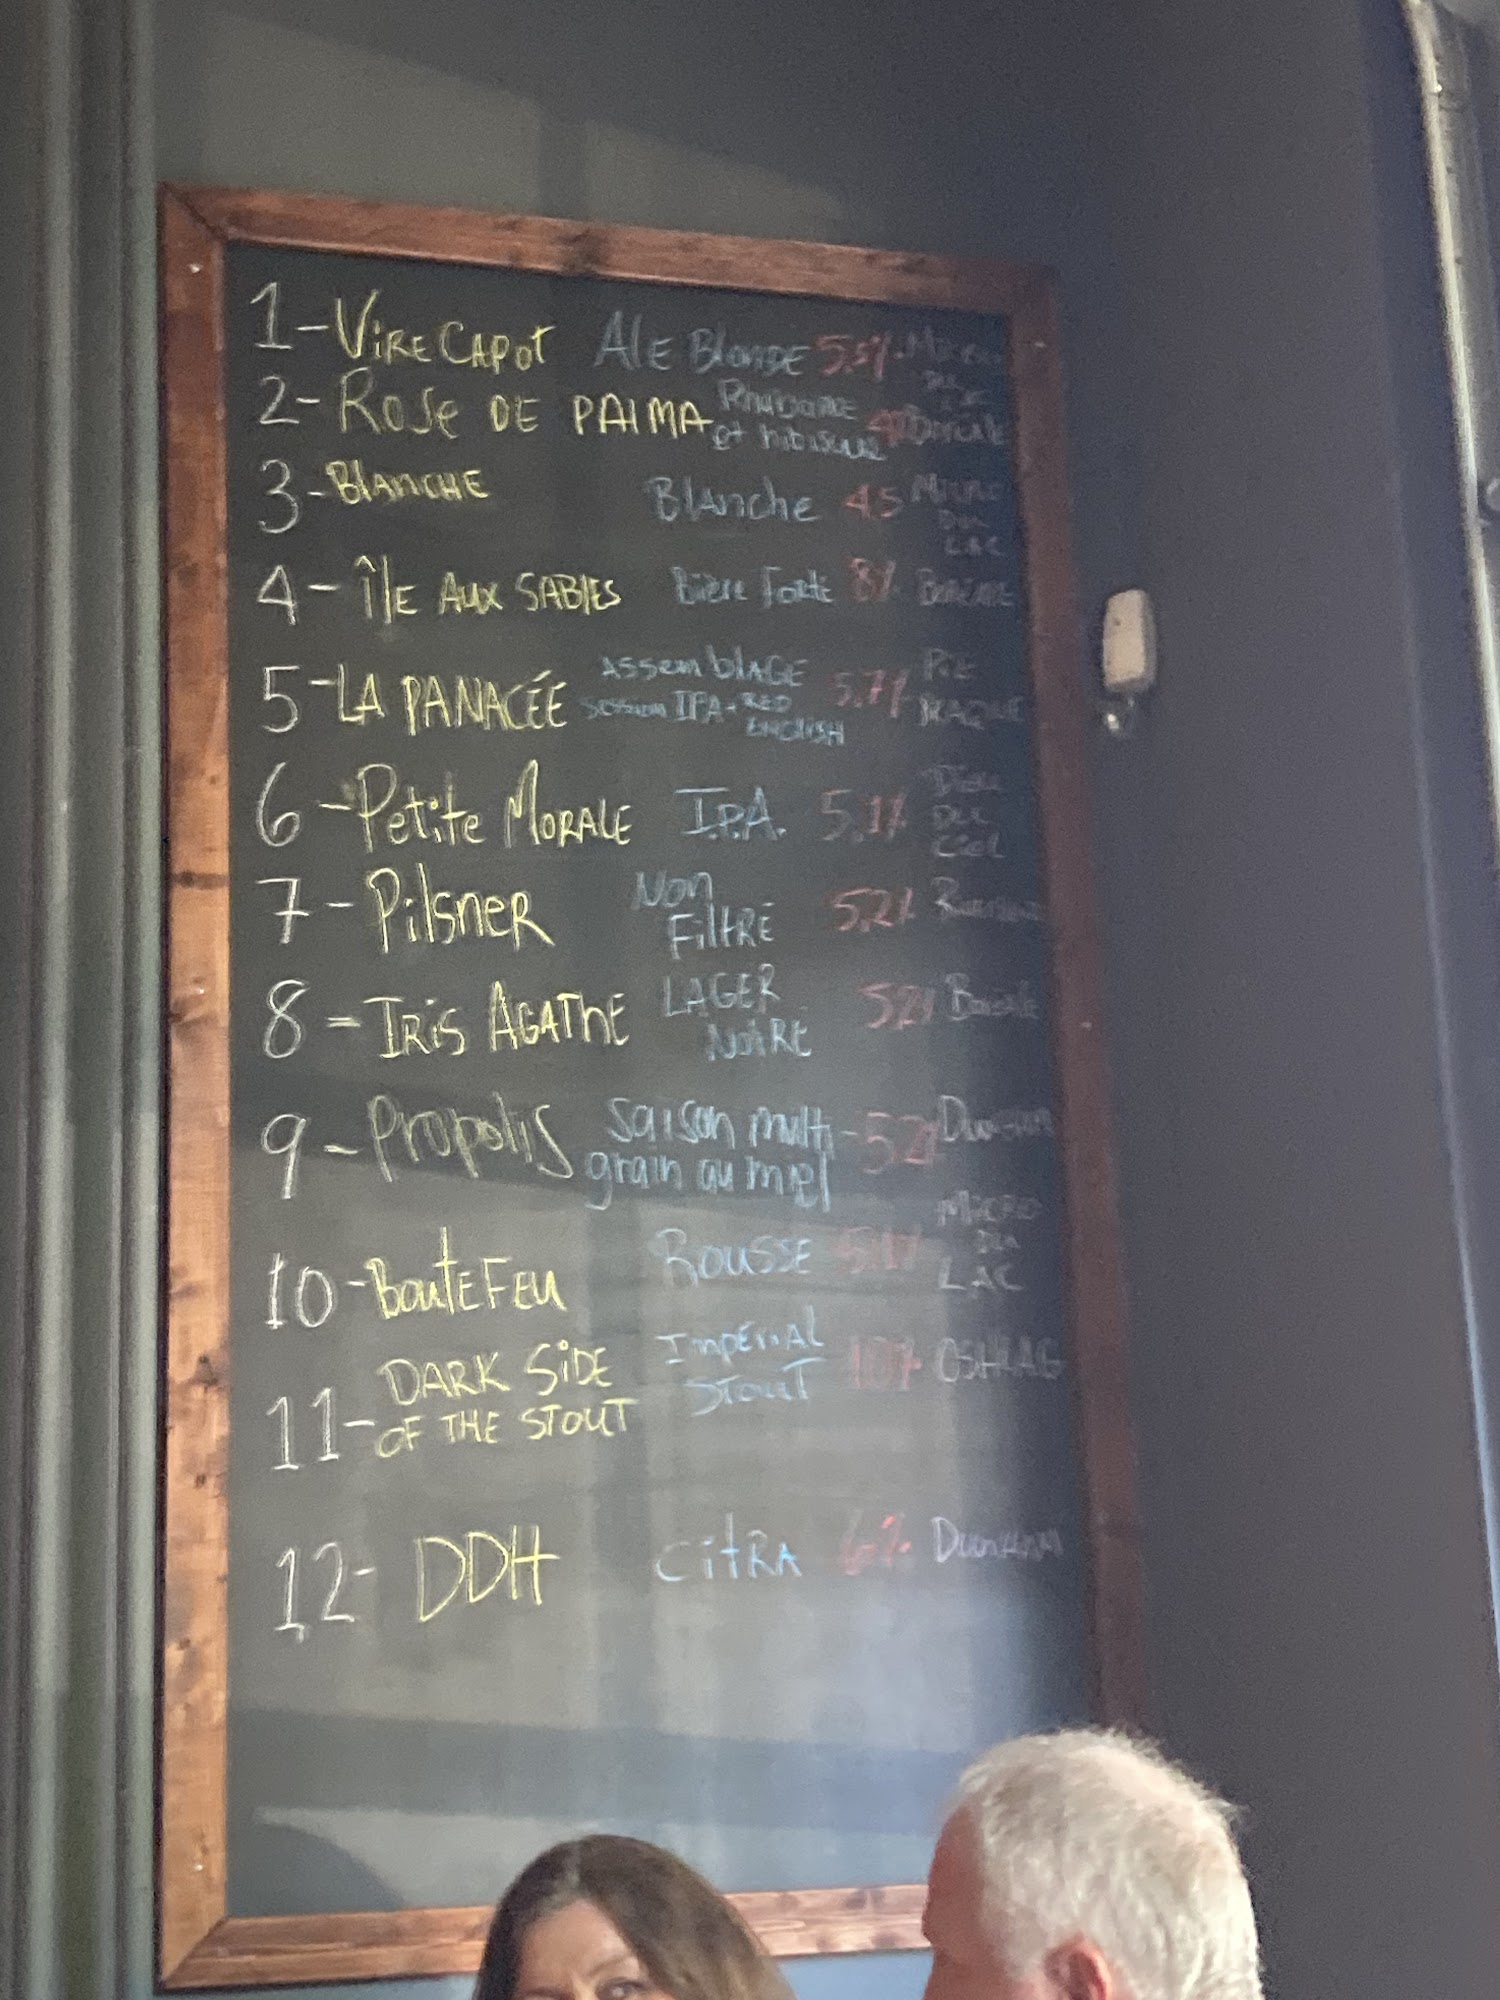 1-Vire Capot Ale Blonde 5.5% Micro
du
Lac
2-Rose de Palma Rhubarbe
et hibiscus 4% Boréale
3-Blanche Blanche 4.5 Micro
du
Lac
4-Île aux Sables Bière Forte 8% Boréale
5-La Panacée Assemblage 5.7% Pie
Session IPA-Red Braque
English
6-Petite Morale I.P.A. 5.1% Dieu
du
Ciel
7-Pilsner Non
Filtré 5.2%
8-Iris Agathe Lager
Noire 5.2% Boréale
9-Propolis Saison multi-
grain au miel 5.2% Dunham
10-BouteFeu Rousse Micro
du
Lac
11-Dark Side
of the Stout Impérial
Stout 10% Oshlag
12-DDH Citra 6% Dunham